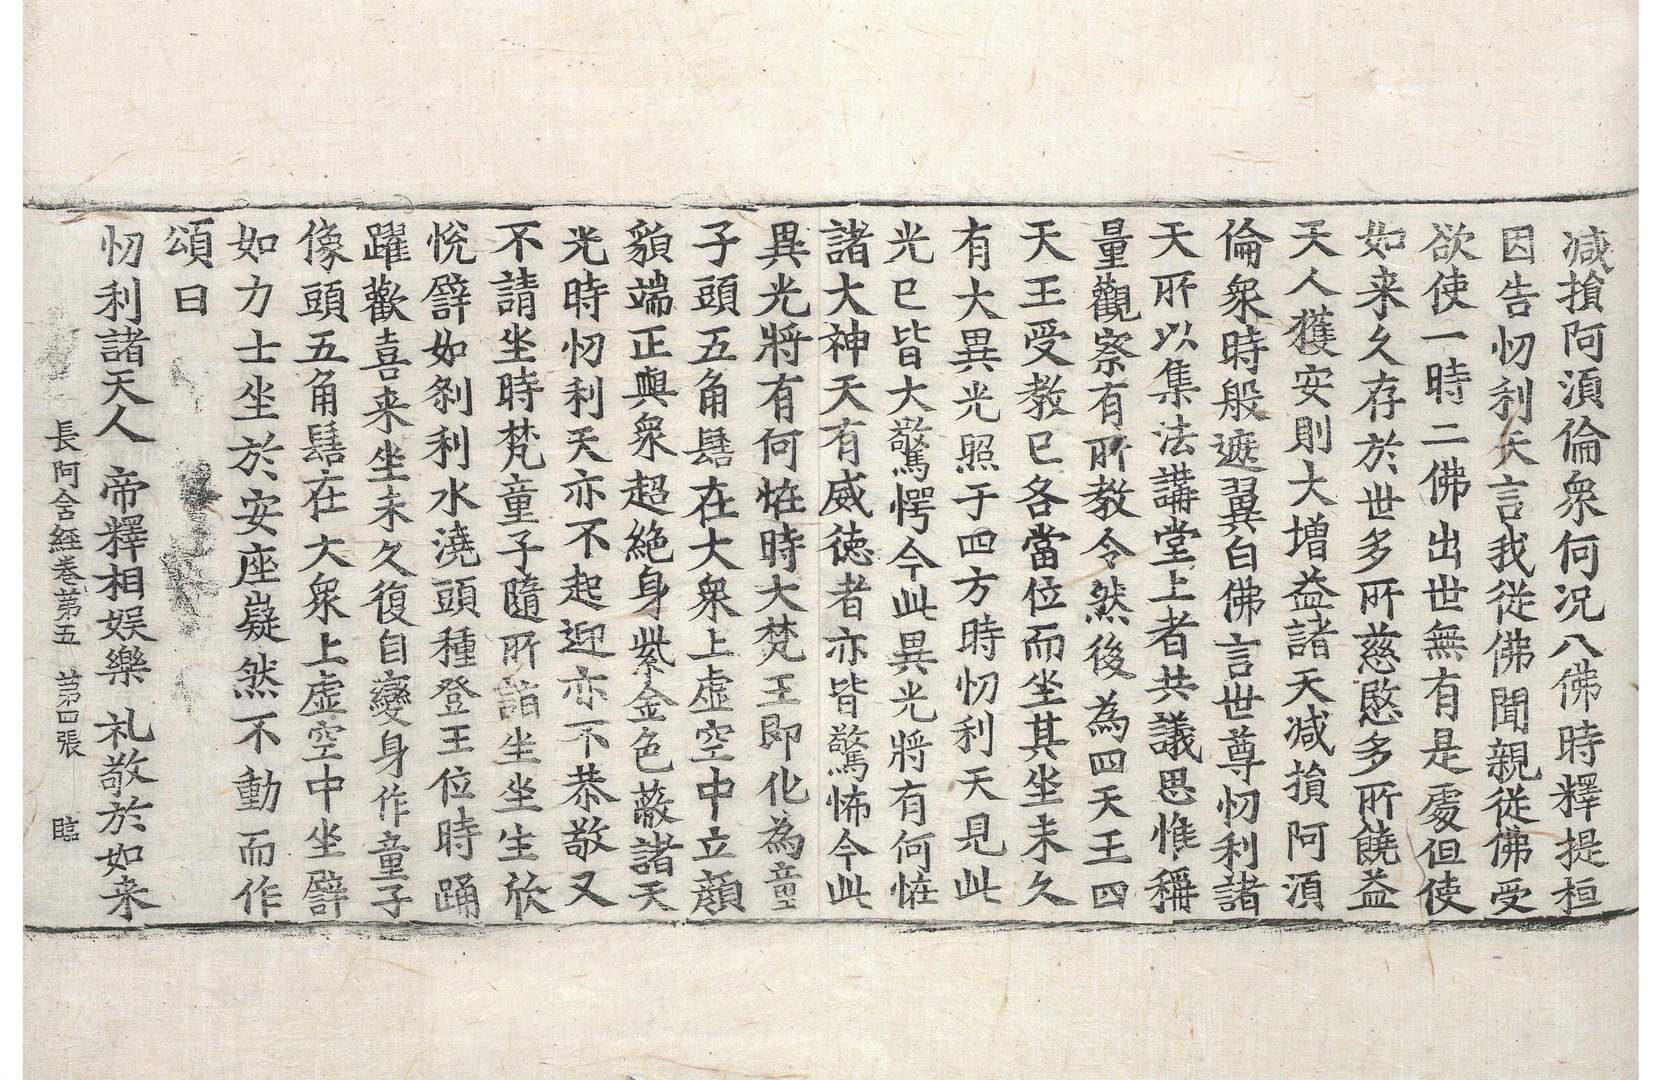 减損阿湏倫衆何况八佛時釋提桓
因告忉利天言我從佛聞親從佛受
欲使一時二佛出世無有是處但使
如来久存於世多所慈愍多所饒益
天人獲安則大增益諸天减損阿湏
倫衆時般遮翼白佛言世尊忉利諸
天所以集法講堂上者共議思惟稱
量觀察有所教令然後為四天王四
天王受教已各當位而坐其坐未久
有大異光照于四方時忉利天見此
光已皆大驚愕今此異光將有何恠
諸大神天有威德者亦皆驚怖今此
異光將有何恠時大梵王即化為童
子頭五角髻在大衆上虛空中立顔
貌端正與衆超絶身紫金色蔽諸天
光時忉利天亦不起迎亦不恭敬又
不請坐時梵童子隨所詣坐坐生欣
悅譬如刹利水澆頭種登王位時踊
躍歡喜来坐未久復自變身作童子
像頭五角髻在大衆上虛空中坐譬
如力士坐於安座嶷然不動而作
頌曰
忉利諸天人 帝釋相娛樂 礼敬於如来
長阿含經卷第五 第四張 臨